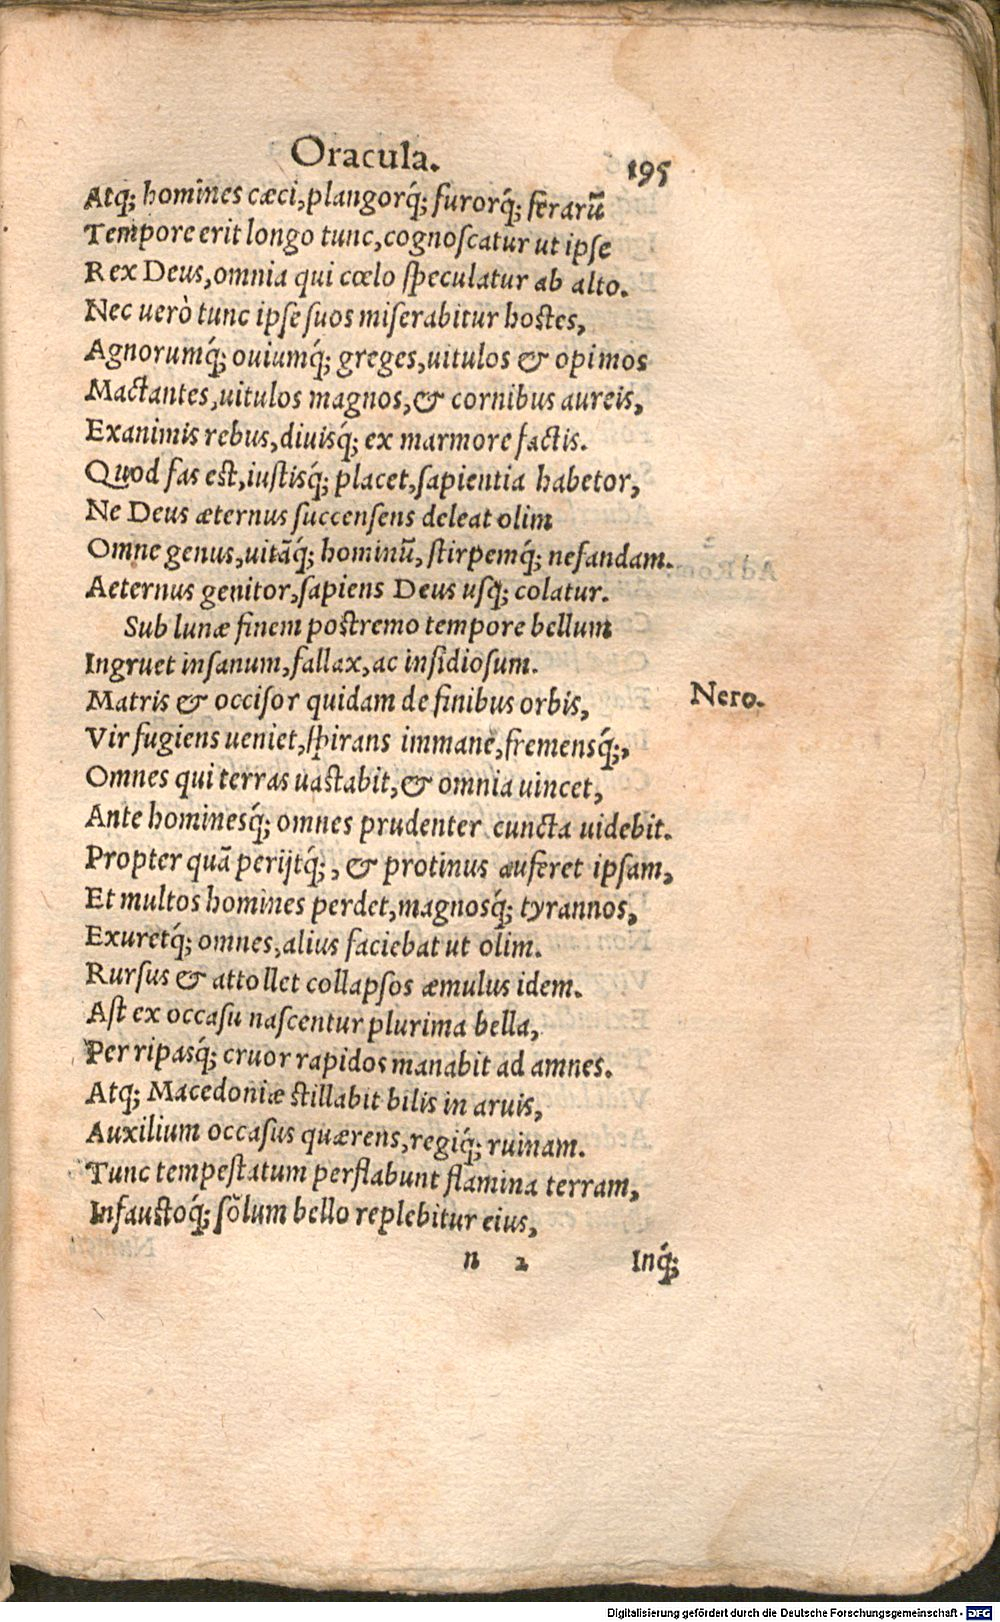 Oracula. 195
Atq; homines cæci, plangorq́; furorq́; ferarū
Tempore erit longo tunc, cognoscatur ut ipse
Rex Deus, omnia qui cœlo speculatur ab alto.
Nec uerò tunc ipse suos miserabitur hostes,
Agnorumq́; ouiumq́; greges, uitulos & opimos
Mactantes, uitulos magnos, & cornibus aureis,
Exanimis rebus, diuisq́; ex marmore factis.
Quod fas est, iustisq́; placet, sapientia habetor,
Ne Deus æternus succensens deleat olim
Omne genus, uitāq́; hominū, stirpemq́; nefandam.
Aeternus genitor, sapiens Deus usq; colatur.
Sub lunæ finem postremo tempore bellum
Ingruet insanum, fallax, ac insidiosum.
Matris & occisor quidam de finibus orbis,
Nero.
Vir fugiens ueniet, spirans immane, fremensq́;,
Omnes qui terras uastabit, & omnia uincet,
Ante hominesq́; omnes prudenter cuncta uidebit.
Propter quā perijtq́;, & protinus auferet ipsam,
Et multos homines perdet, magnosq́; tyrannos,
Exuretq́; omnes, alius faciebat ut olim.
Rursus & attollet collapsos æmulus idem.
Ast ex occasu nascentur plurima bella,
Per ripasq́; cruor rapidos manabit ad amnes.
Atq; Macedoniæ stillabit bilis in aruis,
Auxilium occasus quærens, regiq́; ruinam.
Tunc tempestatum perflabunt flamina terram,
Infaustoq́; sõlum bello replebitur eius,
n 2 Inq́;
Digitalisierung gefördert durch die Deutsche Forschungsgemeinschaft - DFG